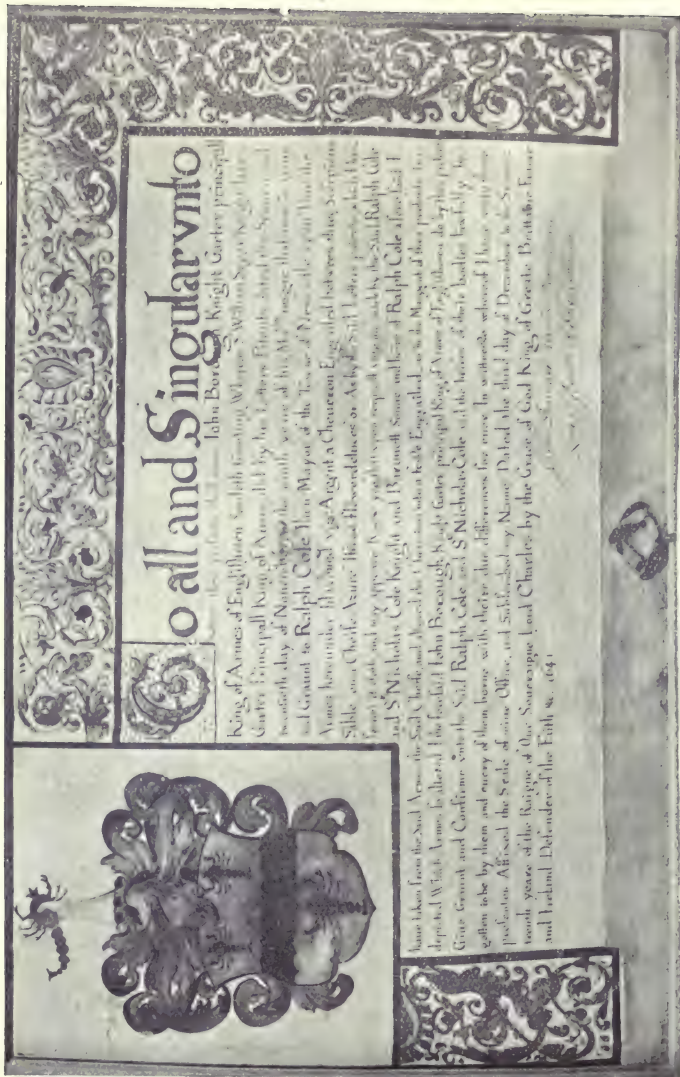 To all and Singular vnto
John Borough Knight Garter principall
King of Armes of Englishmen Sendeth Greeting Whereas William Segar Knight
Garter Principall King of Armes did by his Letters Patents dated the
twentieth day of in the yeare of his Ma.ties raigne
and Graunt to Ralph Cole Then Mayor of the Towne of Newcastle vpon Tine the
Armes hereunder viz Argent a Cheueron Engrailed betweene three Scorpions
Sable on a Cheife Azure three Flowerdeluces or As by the Said Letters patents
may appeare vpon request vnto me made by the Said Ralph Cole
and S.r Nicholas Cole Knight and Baronett Sonne and heire of Ralph Cole aforesaid I
haue taken from the Said Armes the Said Cheife and altered the Cheueron into a fesse Engrailed as in the Margent of thes presents are
depicted Which Armes So altered I the foresaid John Borough Knight Garter principall King of Armes of Englishmen do by this patent
Giue Graunt and Confirme vnto the Said Ralph Cole and S.r Nicholas Cole and the heires of their bodies lawfully be
gotten to be by them and euery of them borne with theire due differences for euer In witnesse whereof I haue vnto these
presents Affixed the Seale of mine Office and Subscribed my Name Dated the third day of December in the Seauen
teenth yeare of the Raigne of Our Soueraigne Lord Charles by the Grace of God King of Greate Brittaine France
and Ireland Defender of the Faith &c. 1641